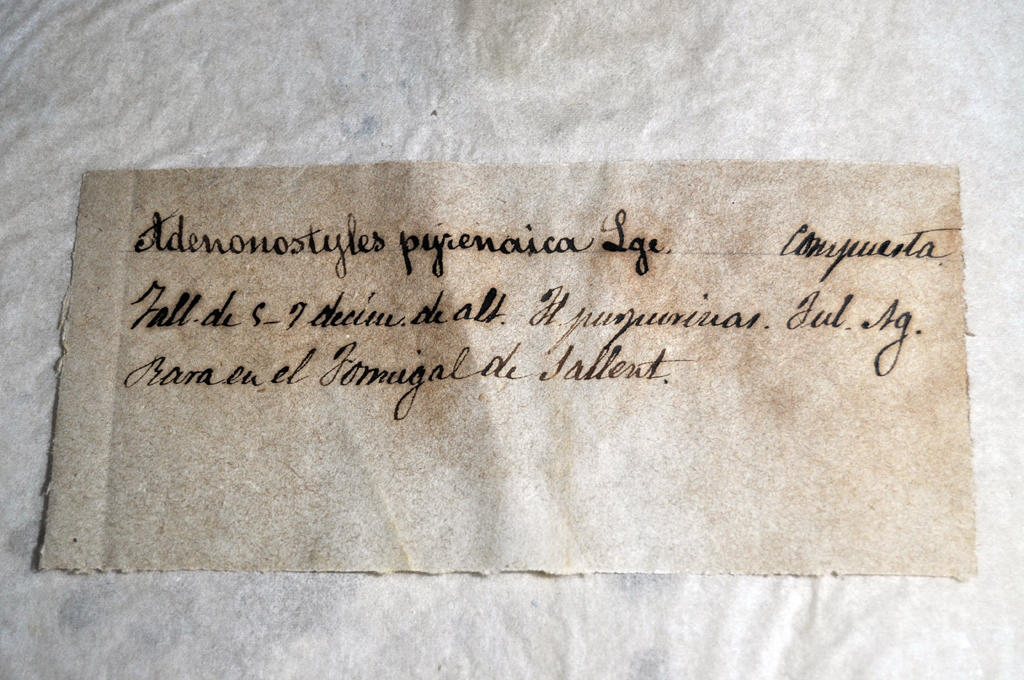 Adenonostyles pyrenaica Lge. Compuesta
Tall. de 5-7 decím. de alt. Fl purpurinas. Jul. Ag.
Rara en el Formigal de Sallent.